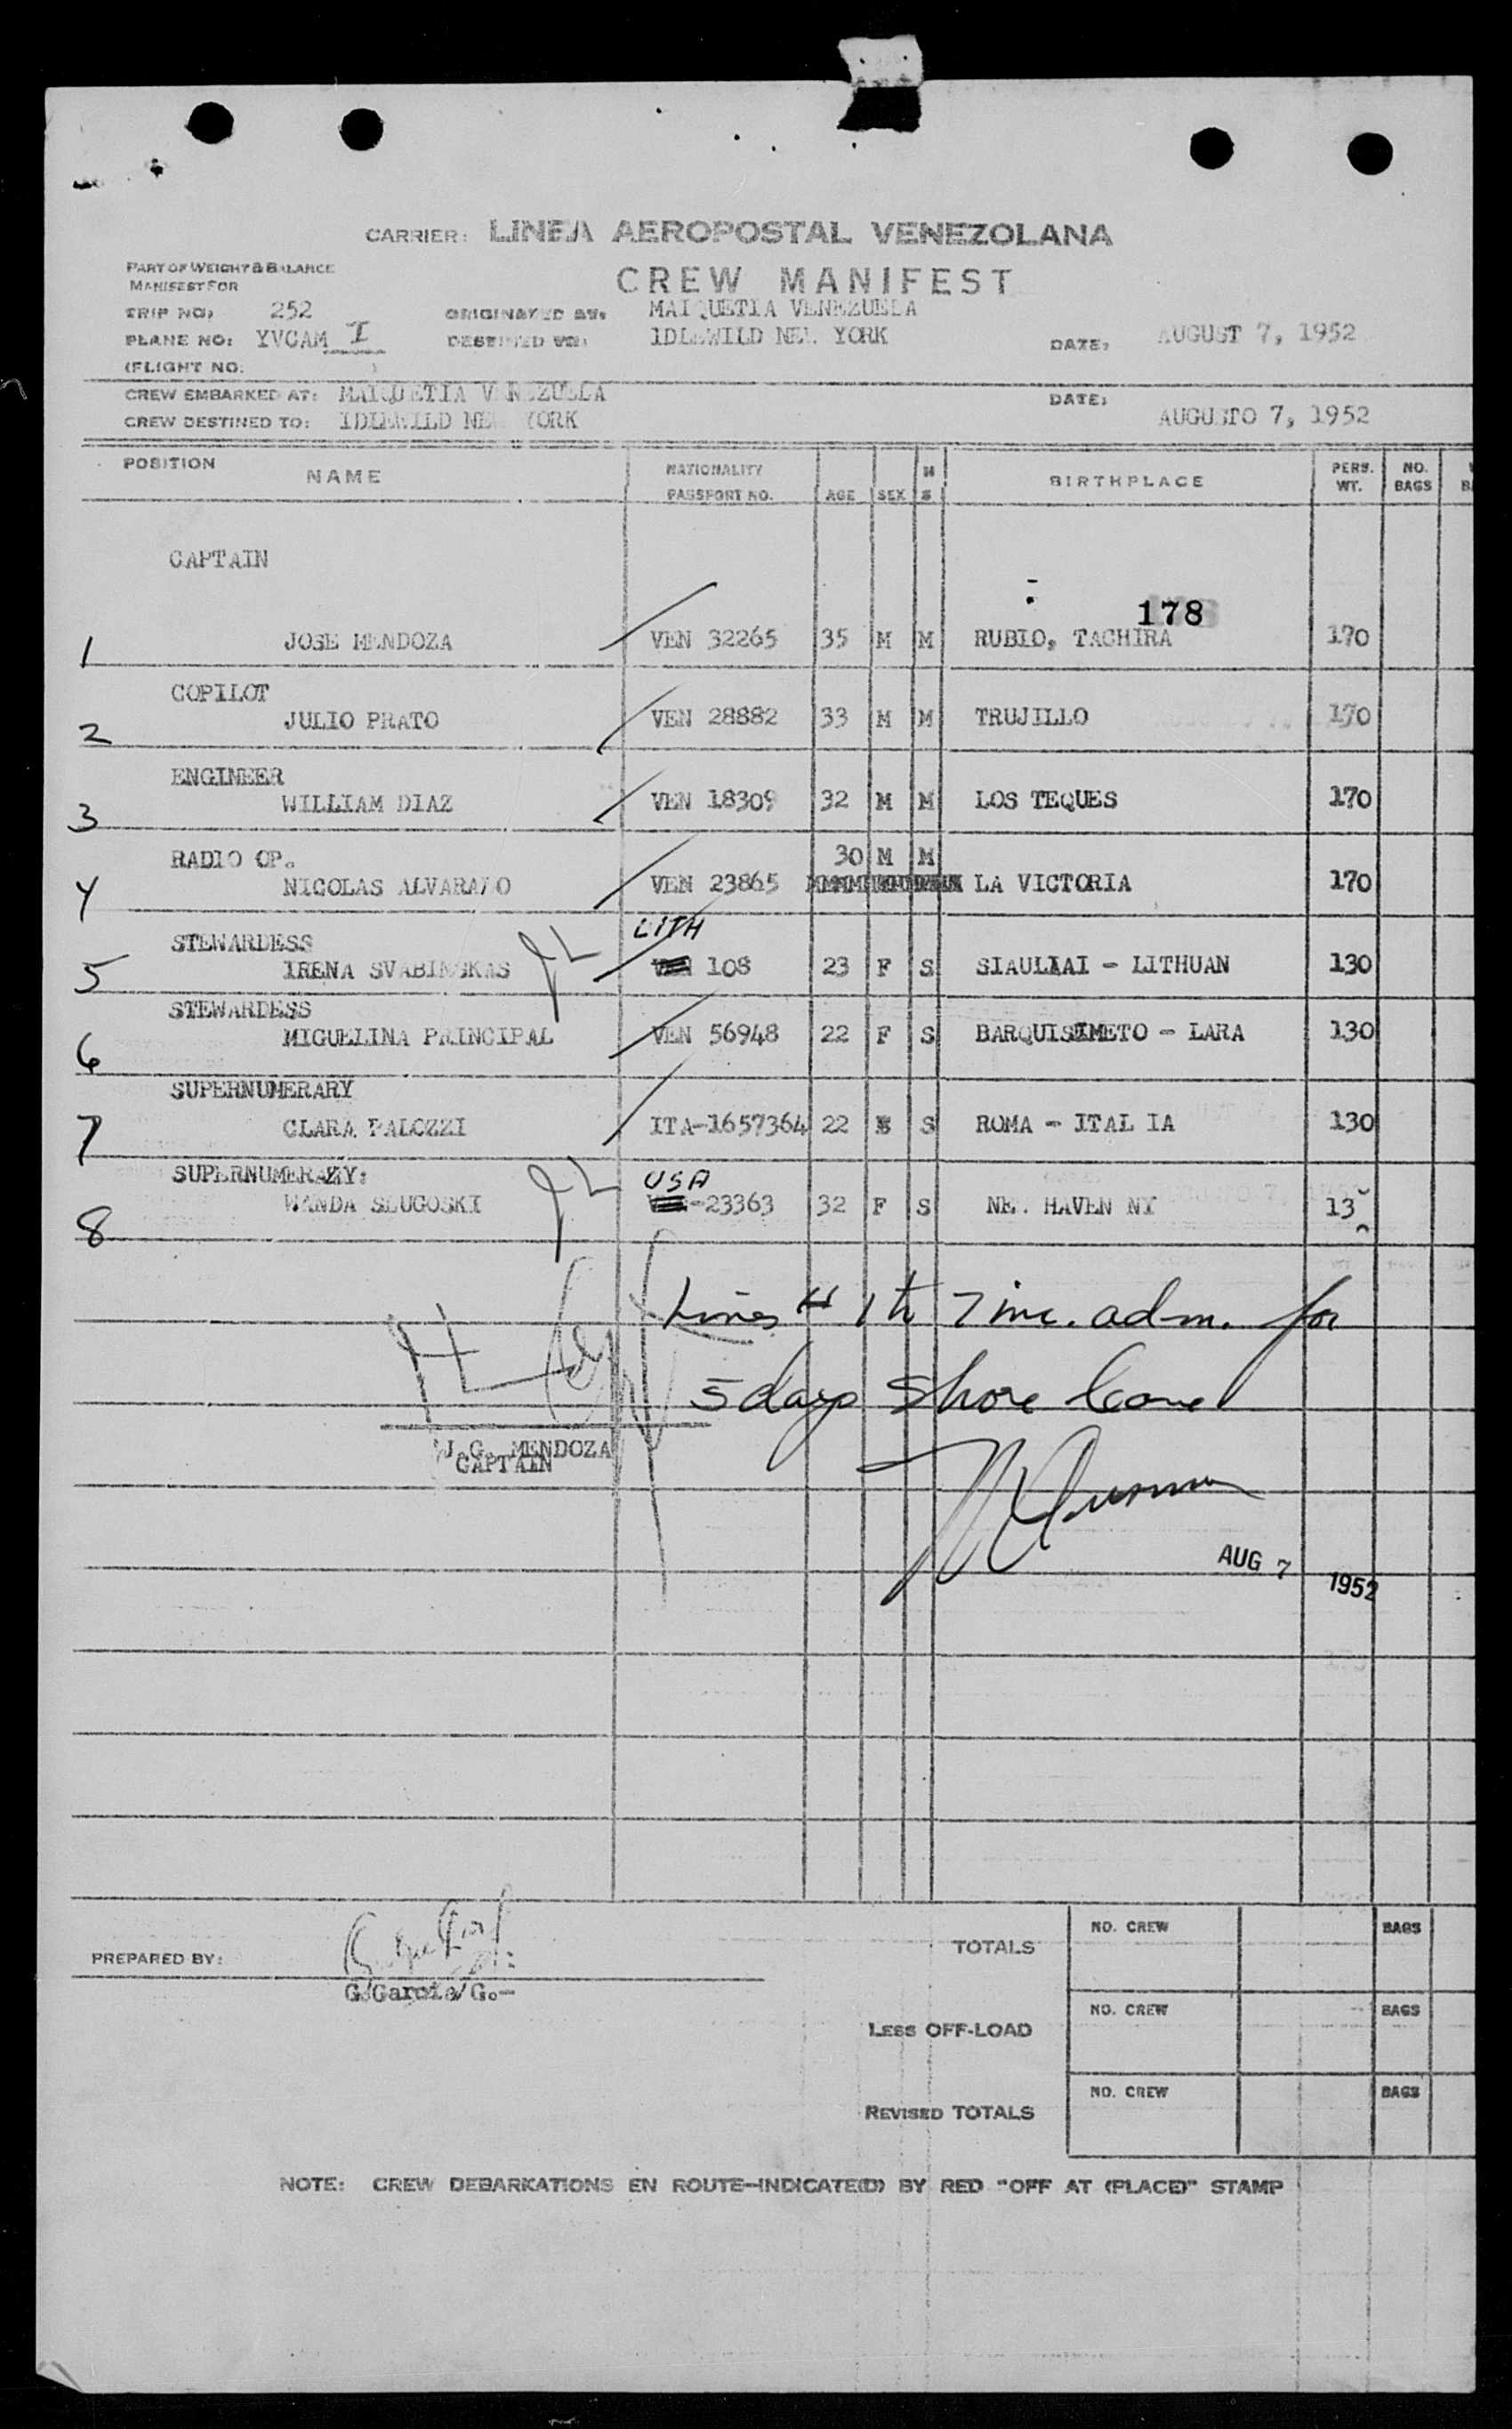 CARRIER: LINEA AEROPOSTAL VENEZOLANA
PART OF WEIGHT & BALANCE
MANIFEST FOR
CREW MANIFEST
TRIP NO: 252 ORIGINATED AT: MAIQUETIA VENEZUELA
PLANE NO: YVCAM I DESTINED TO: IDLEWILD NEW YORK DATE: AUGUST 7, 1952
(FLIGHT NO. )
CREW EMBARKED AT: MAIQUETIA VENEZUELA DATE:
CREW DESTINED TO: IDLEWILD NEW YORK AUGUSTO 7, 1952
POSITION NAME NATIONALITY PASSPORT NO. AGE SEX M S BIRTHPLACE PERS. WT. NO. BAGS
CAPTAIN
178
1 JOSE MENDOZA VEN 32265 35 M M RUBIO, TACHIRA 170
COPILOT
2 JULIO PRATO VEN 28882 33 M M TRUJILLO 170
ENGINEER
3 WILLIAM DIAZ VEN 18309 32 M M LOS TEQUES 170
RADIO OP. 30 M M
4 NICOLAS ALVARADO VEN 23865 LA VICTORIA 170
STEWARDESS LITH
5 IRENA SVABINSKAS 108 23 F S SIAULIAI - LITHUAN 130
STEWARDESS
6 MIGUELINA PRINCIPAL VEN 56948 22 F S BARQUISIMETO - LARA 130
SUPERNUMERARY
7 CLARA PALOZZI ITA-1657364 22 S ROMA - ITAL IA 130
SUPERNUMERARY: USA
8 WANDA SLUGOSKI -23363 32 F S NE. HAVEN NY 13
Lines # 1 to 7 inc. adm. for
5 days Shore leave
J.G. MENDOZA
CAPTAIN
AUG 7 1952
PREPARED BY:
G/Garcia/G.-
TOTALS NO. CREW BAGS
LESS OFF-LOAD NO. CREW BAGS
REVISED TOTALS NO. CREW BAGS
NOTE: CREW DEBARKATIONS EN ROUTE-INDICATE(D) BY RED "OFF AT (PLACE)" STAMP